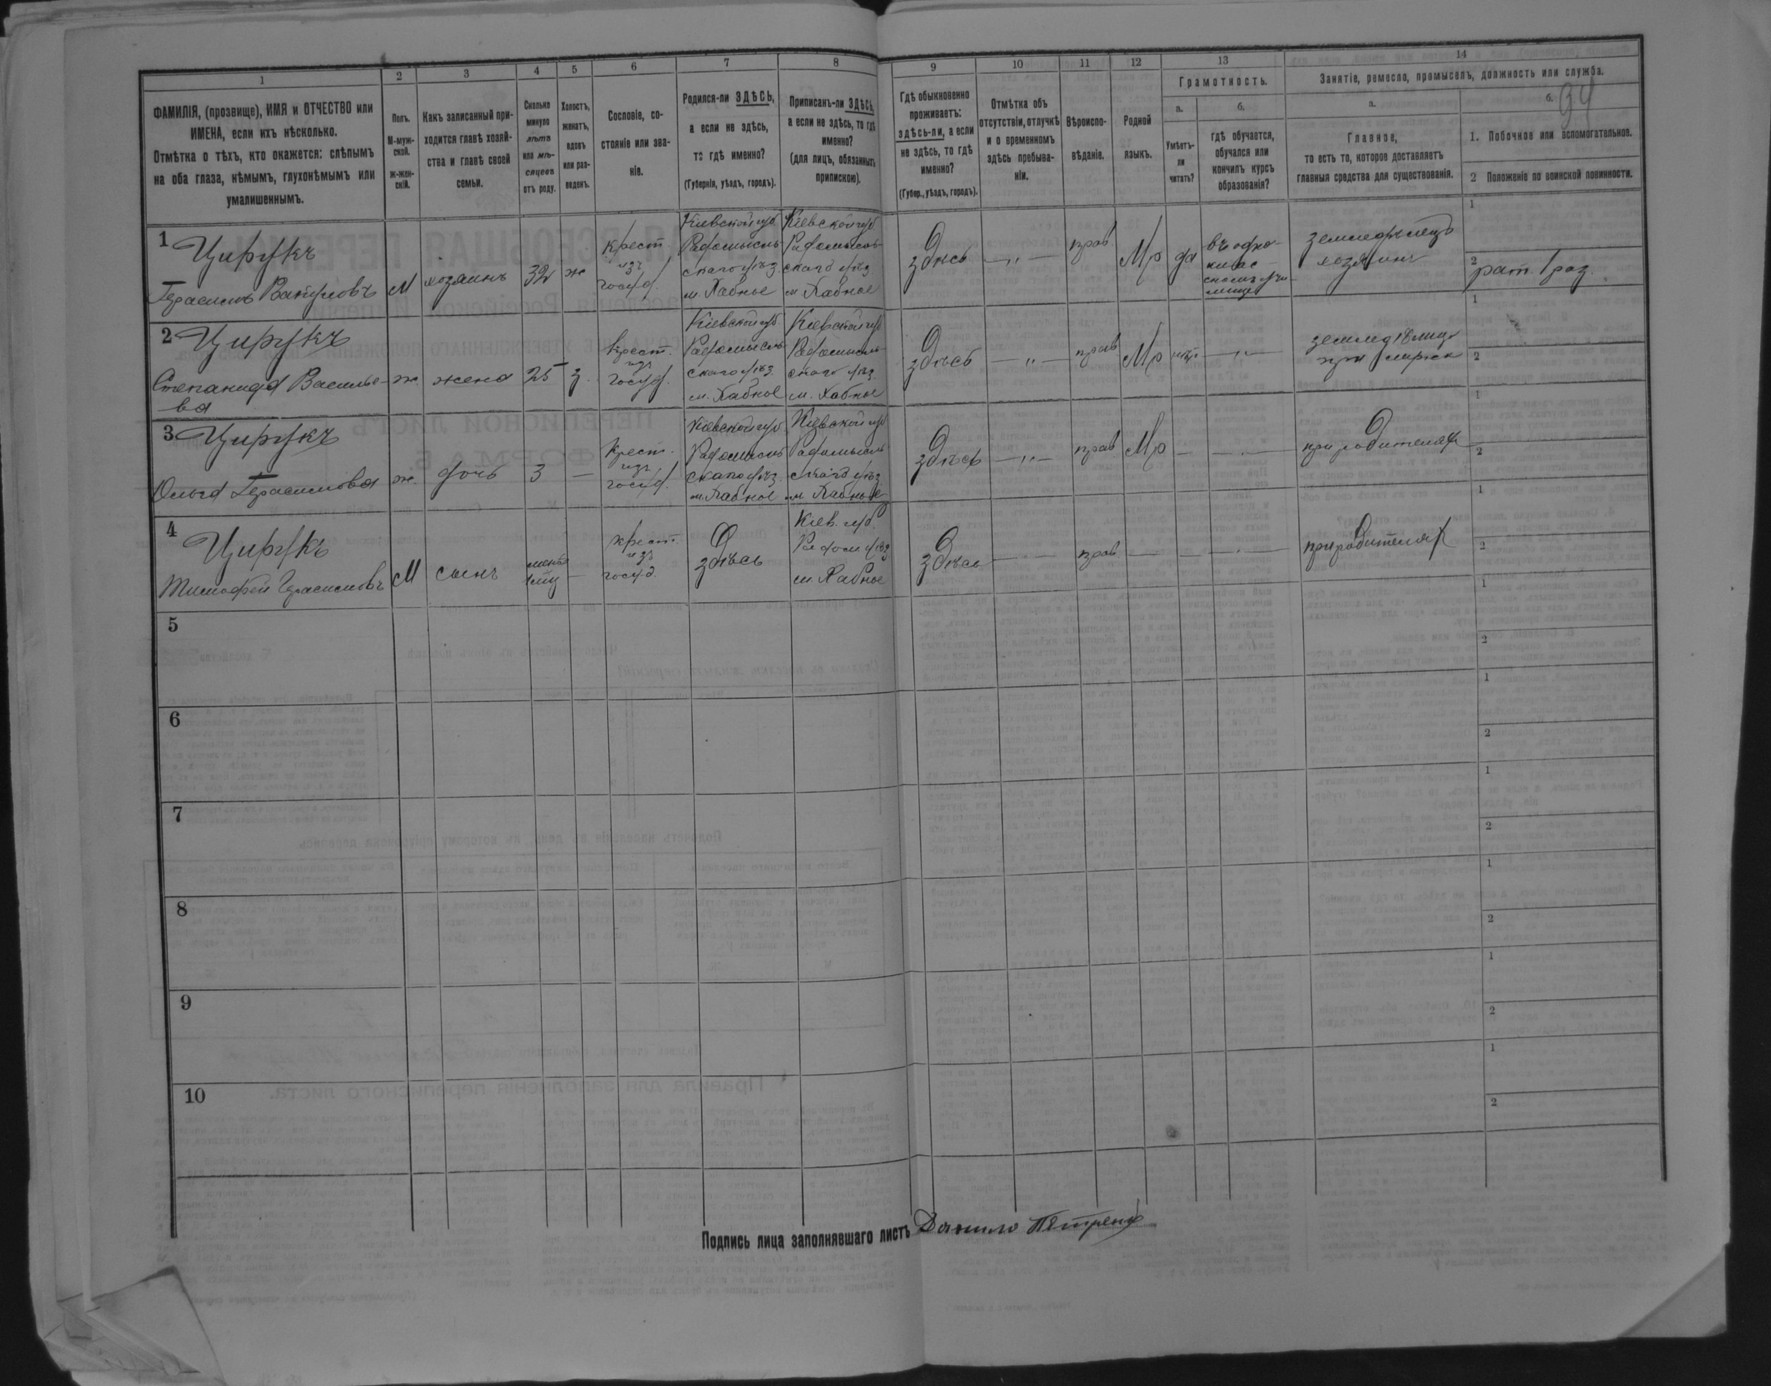 1 2 3 4 5 6 7 8 9 10 11 12 13 14
ФАМИЛІЯ, (прозвище), ИМЯ и ОТЧЕСТВО или
ИМЕНА, если ихъ нѣсколько.
Отмѣтка о тѣхъ, кто окажется: слѣпымъ
на оба глаза, нѣмымъ, глухонѣмымъ или
умалишеннымъ.
Полъ.
М-муж-
ской.
ж-жен-
скій.
Какъ записанный при-
ходится главѣ хозяй-
ства и главѣ своей
семьи.
Сколько
минуло
лѣтъ
или мѣ-
сяцевъ
отъ роду.
Холостъ,
женатъ,
вдовъ
или раз-
веденъ.
Сословіе, со-
стояніе или зва-
ніе.
Родился-ли ЗДѢСЬ,
а если не здѣсь,
то гдѣ именно?
(Губернія, уѣздъ, городъ).
Приписанъ-ли ЗДѢСЬ,
а если не здѣсь, то гдѣ
именно?
(для лицъ, обязанныхъ
припискою).
Гдѣ обыкновенно
проживаетъ:
здѣсь-ли, а если
не здѣсь, то гдѣ
именно?
(Губер., уѣздъ, городъ).
Отмѣтка объ
отсутствіи, отлучкѣ
и о временномъ
здѣсь пребыва-
ніи.
Вѣроиспо-
вѣданіе.
Родной
языкъ.
Грамотность.
а.
Умѣетъ-
ли
читать?
б.
гдѣ обучается,
обучался или
кончилъ курсъ
образованія?
Занятіе, ремесло, промыселъ, должность или служба.
а.
Главное,
то есть то, которое доставляетъ
главныя средства для существованія.
б.
94
1. Побочное или вспомогательное.
2 Положеніе по воинской повинности.
1
Цирукъ
Герасимъ
М
хозяинъ
32
ж
крест
изъ
госуд.
Кіевской губ
Радомысль-
скаго уѣз
м. Хабное
Кіевской губ
Радомысль-
скаго уѣз
м. Хабное
Здѣсь
— „ —
прав
Мр
да
въ одно-
клас-
земледѣлецъ
хозяинъ
1
2
рат 1 раз.
2
Цирукъ
Степанида Василье-
ва
ж
жена
25
з.
крест.
изъ
госуд.
Кіевской губ
Радомысль-
скаго уѣз
м. Хабное
Кіевской губ
Радомысль-
скаго уѣз
м. Хабное
Здѣсь
— „ —
прав
Мр
нѣт
— „ —
при мужѣ
1
2
3
Цирукъ
Ольга Герасимова
ж
дочь
3
—
крест.
изъ
госуд.
Кіевской губ
Радомысль
скаго уѣз.
м. Хабное
Кіевской губ
Радомысль
скаго уѣз
м. Хабное
Здѣсь
— „ —
прав
Мр
—
—
при родителях
1
2
4
Цирукъ
Тимофей Герасимовъ
М
сынъ
—
крест.
изъ
госуд.
Здѣсь
Кіев. губ
Радом уѣз
м Хабное
Здѣсь
—
прав
—
—
—
при родителях
1
2
5
1
2
6
1
2
7
1
2
8
1
2
9
1
2
10
1
2
Подпись лица заполнявшаго листъ Данило Петренко